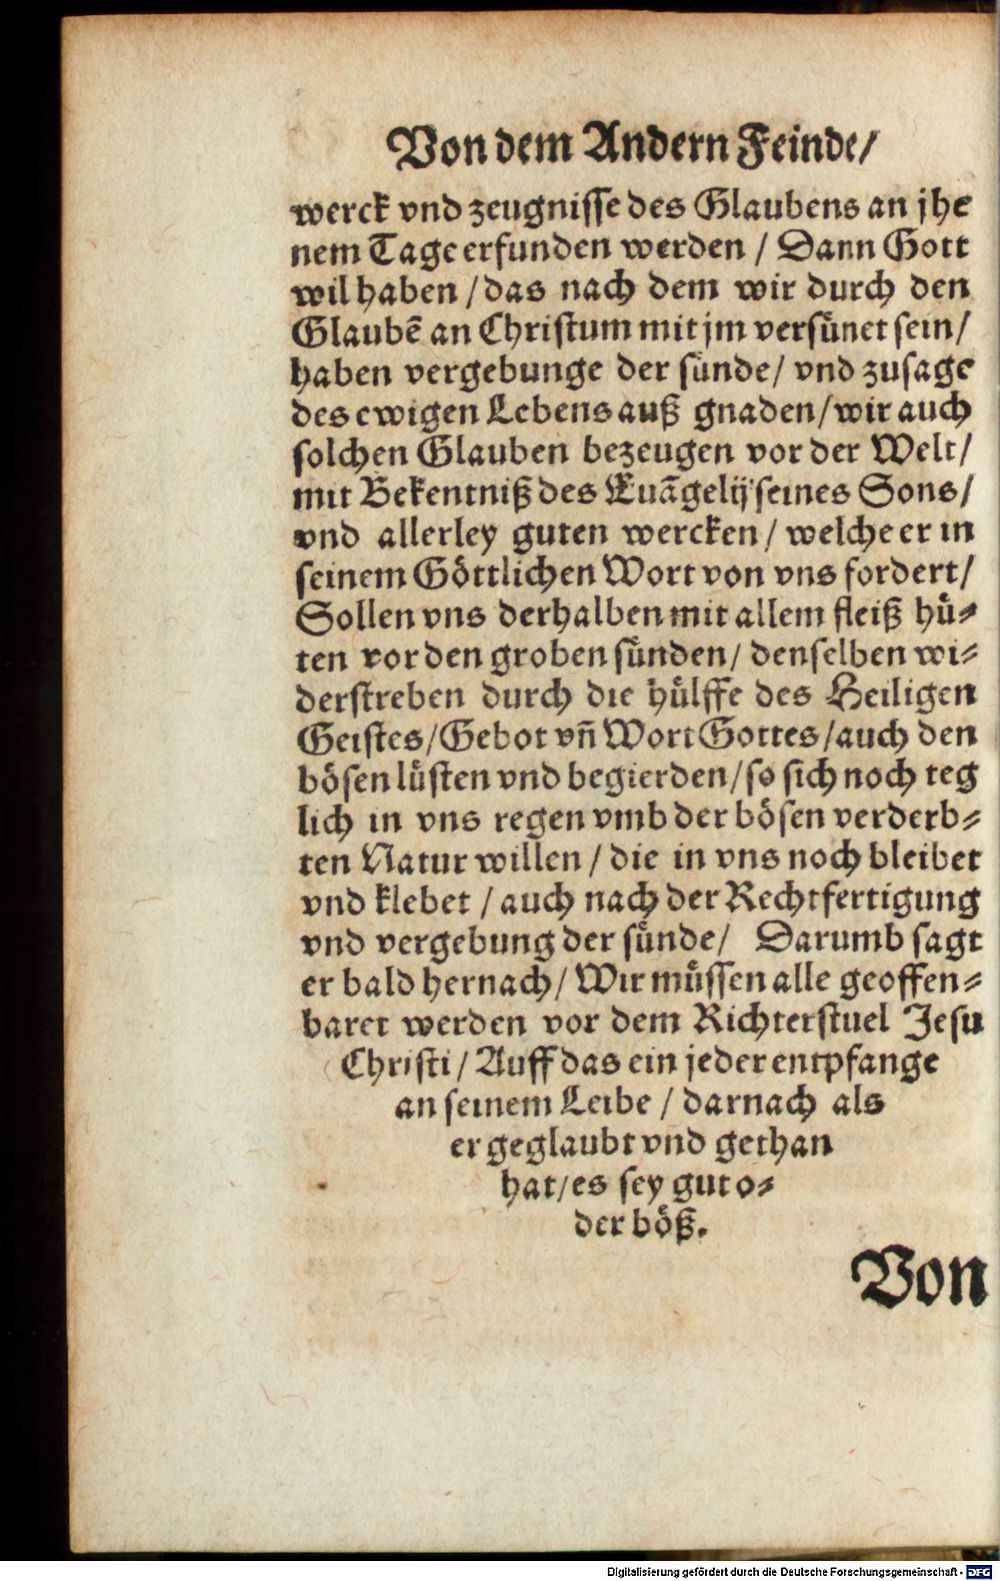 Von dem Andern Feinde/
werck vnd zeugnisse des Glaubens an jhe
nem Tage erfunden werden / Dann Gott
wil haben / das nach dem wir durch den
Glaubē an Christum mit jm versünet sein/
haben vergebunge der sünde / vnd zusage
des ewigen Lebens auß gnaden / wir auch
solchen Glauben bezeugen vor der Welt/
mit Bekentniß des Euāgelij seines Sons/
vnd allerley guten wercken / welche er in
seinem Göttlichen Wort von vns fordert/
Sollen vns derhalben mit allem fleiß hü-
ten vor den groben sünden / denselben wi-
derstreben durch die hülffe des Heiligen
Geistes / Gebot vñ Wort Gottes / auch den
bösen lüsten vnd begierden / so sich noch teg
lich in vns regen vmb der bösen verderb-
ten Natur willen / die in vns noch bleibet
vnd klebet / auch nach der Rechtfertigung
vnd vergebung der sünde / Darumb sagt
er bald hernach / Wir müssen alle geoffen-
baret werden vor dem Richterstuel Jesu
Christi / Auff das ein jeder entpfange
an seinem Leibe / darnach als
er geglaubt vnd gethan
hat / es sey gut o-
der böß.
Von
Digitalisierung gefördert durch die Deutsche Forschungsgemeinschaft - DFG